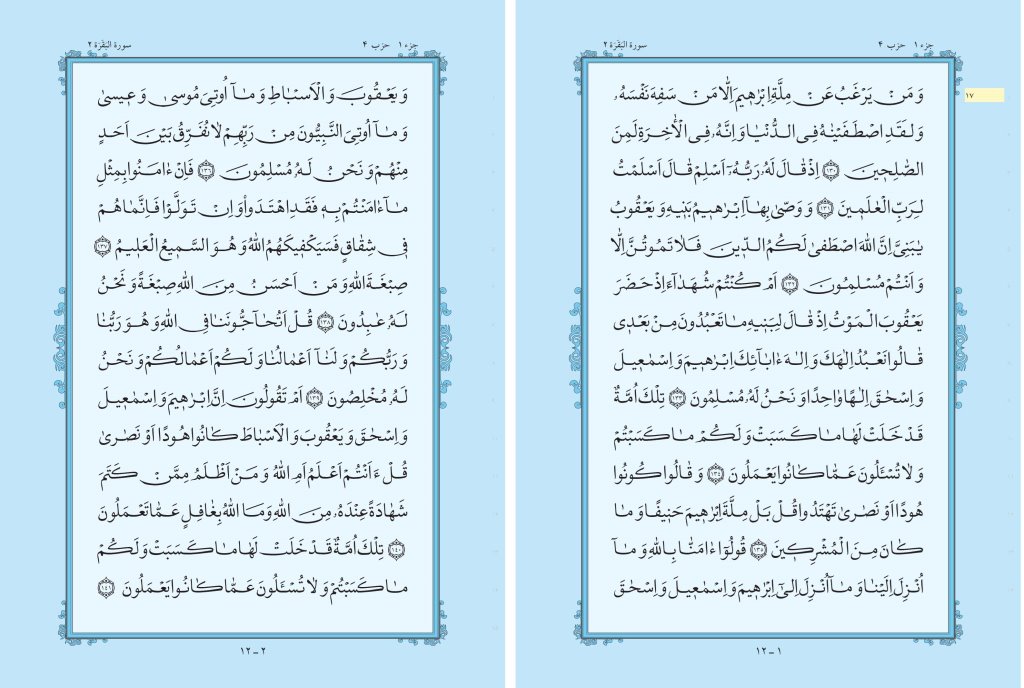 جزء ١ حزب ۴
سورة البَقَرَة ٢
١٧
وَ مَنْ يَرْغَبُ عَنْ مِلَّةِ اِبْرٰهيمَ اِلّا مَنْ سَفِهَ نَفْسَهُ،
وَ لَقَدِ اصْطَفَيْنٰهُ فِى الدُّنْيا وَ اِنَّهُ، فِى الْأٰخِرَةِ لَمِنَ
الصّٰلِحينَ ١٣٠ اِذْ قالَ لَهُ، رَبُّهُ، اَسْلِمْ قالَ اَسْلَمْتُ
لِرَبِّ الْعٰلَمينَ ١٣١ وَ وَصّىٰ بِهآ اِبْرٰهيمُ بَنيهِ وَ يَعْقُوبُ
يٰبَنِىَّ اِنَّ اللّٰهَ اصْطَفىٰ لَكُمُ الدّينَ فَلا تَمُوتُنَّ اِلّا
وَ اَنْتُمْ مُسْلِمُونَ ١٣٢ اَمْ كُنْتُمْ شُهَدآءَ اِذْ حَضَرَ
يَعْقُوبَ الْمَوْتُ اِذْ قالَ لِبَنيهِ ما تَعْبُدُونَ مِنْ بَعْدى
قالُوا نَعْبُدُ اِلٰهَكَ وَ اِلٰهَ ءابآئِكَ اِبْرٰهيمَ وَ اِسْمٰعيلَ
وَ اِسْحٰقَ اِلٰهًا واحِدًا وَ نَحْنُ لَهُ، مُسْلِمُونَ ١٣٣ تِلْكَ اُمَّةٌ
قَدْ خَلَتْ لَها ما كَسَبَتْ وَ لَكُمْ ما كَسَبْتُمْ
وَ لا تُسْئَلُونَ عَمّا كانُوا يَعْمَلُونَ ١٣٤ وَ قالُوا كُونُوا
هُودًا اَوْ نَصٰرىٰ تَهْتَدُوا قُلْ بَلْ مِلَّةَ اِبْرٰهيمَ حَنيفًا وَ ما
كانَ مِنَ الْمُشْرِكينَ ١٣٥ قُولُوٓا ءامَنّا بِاللّٰهِ وَ مآ
اُنْزِلَ اِلَيْنا وَ مآ اُنْزِلَ اِلىٰٓ اِبْرٰهيمَ وَ اِسْمٰعيلَ وَ اِسْحٰقَ
١٢ - ١
جزء ١ حزب ۴
سورة البَقَرَة ٢
وَ يَعْقُوبَ وَ الْاَسْباطِ وَ مآ اُوتِىَ مُوسىٰ وَ عيسىٰ
وَ مآ اُوتِىَ النَّبِيُّونَ مِنْ رَبِّهِمْ لا نُفَرِّقُ بَيْنَ اَحَدٍ
مِنْهُمْ وَ نَحْنُ لَهُ، مُسْلِمُونَ ١٣٦ فَاِنْ ءامَنُوا بِمِثْلِ
مآ ءامَنْتُمْ بِهِ فَقَدِ اهْتَدَوا وَ اِنْ تَوَلَّوْا فَاِنَّما هُمْ
فى شِقاقٍ فَسَيَكْفيكَهُمُ اللّٰهُ وَ هُوَ السَّميعُ الْعَليمُ ١٣٧
صِبْغَةَ اللّٰهِ وَ مَنْ اَحْسَنُ مِنَ اللّٰهِ صِبْغَةً وَ نَحْنُ
لَهُ، عٰبِدُونَ ١٣٨ قُلْ اَتُحآجُّونَنا فِى اللّٰهِ وَ هُوَ رَبُّنا
وَ رَبُّكُمْ وَ لَنآ اَعْمالُنا وَ لَكُمْ اَعْمالُكُمْ وَ نَحْنُ
لَهُ، مُخْلِصُونَ ١٣٩ اَمْ تَقُولُونَ اِنَّ اِبْرٰهيمَ وَ اِسْمٰعيلَ
وَ اِسْحٰقَ وَ يَعْقُوبَ وَ الْاَسْباطَ كانُوا هُودًا اَوْ نَصٰرىٰ
قُلْ ءَاَنْتُمْ اَعْلَمُ اَمِ اللّٰهُ وَ مَنْ اَظْلَمُ مِمَّنْ كَتَمَ
شَهادَةً عِنْدَهُ، مِنَ اللّٰهِ وَ مَا اللّٰهُ بِغافِلٍ عَمّا تَعْمَلُونَ
١٤٠ تِلْكَ اُمَّةٌ قَدْ خَلَتْ لَها ما كَسَبَتْ وَ لَكُمْ
ما كَسَبْتُمْ وَ لا تُسْئَلُونَ عَمّا كانُوا يَعْمَلُونَ ١٤١
١٢ - ٢